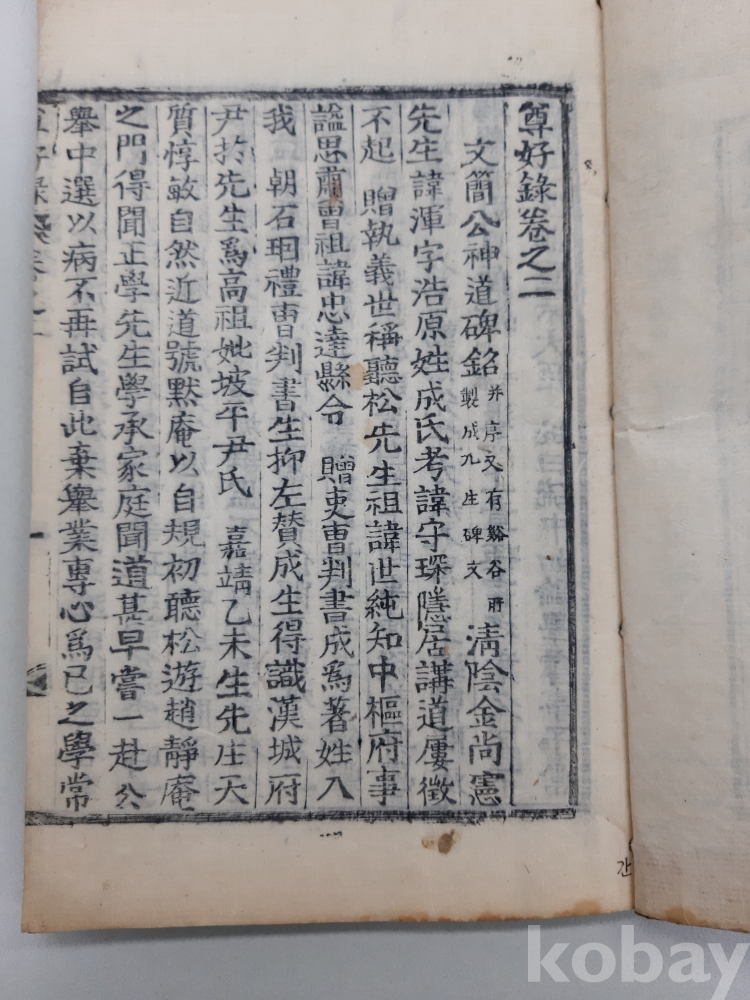 尊好錄卷之二
文簡公神道碑銘 并序又有谿谷所製成九生碑文 淸陰金尙憲
先生諱渾字浩原姓成氏考諱守琛隱居講道屢徵
不起 贈執義世稱聽松先生祖諱世純知中樞府事
謚思肅曺祖諱忠達縣令 贈吏曺判書成爲著姓入
我 朝石玬禮曺判書生抑左賛成生得識漢城府
尹於先生爲高祖妣坡平尹氏 嘉靖乙未生先庄天
質惇敏自然近道號默庵以自規初聽松遊趙靜庵
之門得聞正學先生學承家庭聞道甚早嘗一赴公
舉中選以病不再試自此棄舉業專心爲己之學常
尊好錄 卷之二
一
간
kobay